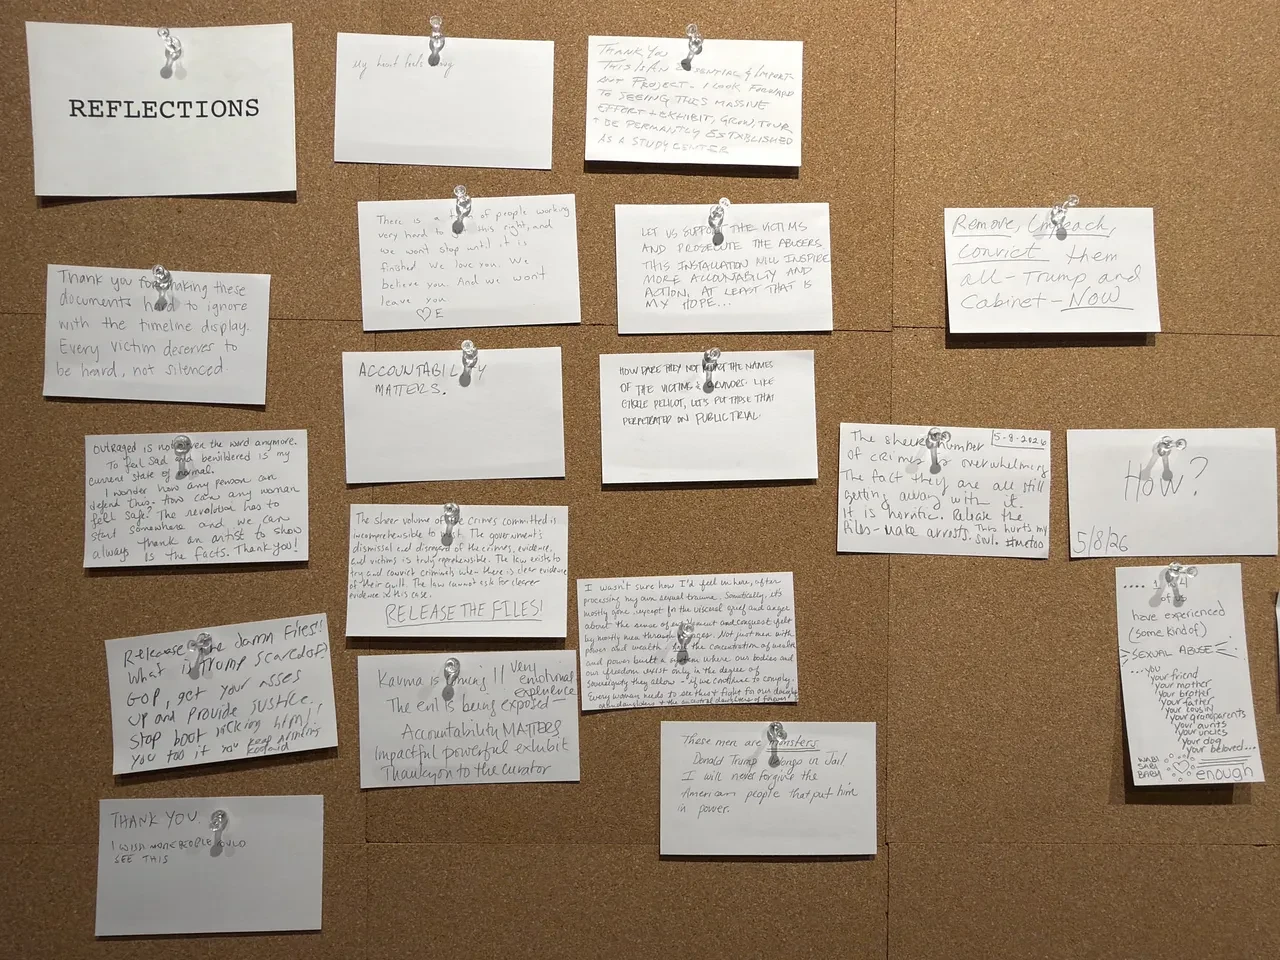 REFLECTIONS
My heart feels
THANK YOU
THIS IS AN ESSENTIAL & IMPORT-
ANT PROJECT - I LOOK FORWARD
TO SEEING THIS MASSIVE
EFFORT + EXHIBIT, GROW, TOUR
+ BE PERMANTLY ESTABLISHED
AS A STUDY CENTER
There is a team of people working
very hard to get this right, and
we won't stop until it is
finished. We love you. We
believe you. And we won't
leave you.
♡E
LET US SUPPORT THE VICTIMS
AND PROSECUTE THE ABUSERS.
THIS INSTALLATION WILL INSPIRE
MORE ACCOUNTABILITY AND
ACTION, AT LEAST THAT IS
MY HOPE...
Remove, Impeach,
Convict them
all - Trump and
Cabinet - NOW
Thank you for making these
documents hard to ignore
with the timeline display.
Every victim deserves to
be hard, not silenced.
ACCOUNTABILITY
MATTERS.
HOW DARE THEY NOT THE NAMES
OF THE VICTIMS & SURVIVORS. LIKE
GISELE PELICOT, LET'S PUT THOSE THAT
PERPETRATED ON PUBLIC TRIAL.
Outraged is not even the word anymore.
To feel sad and bewildered is my
current state of normal.
I wonder how any person can
defend this. How can any woman
feel safe? The revolution has to
start somewhere and we can
always thank an artist to show
us the facts. Thank you!
The sheer volume of the crimes committed is
incomprehensible to most. The government's
dismissal and disregard of the crimes, evidence,
and victims is truly reprehensible. The law exists to
try and convict criminals when there is clear evidence
of their guilt. The law cannot ask for clearer
evidence in this case.
RELEASE THE FILES!
The sheer number 5-8-2026
of crimes is overwhelming
The fact they are all still
getting away with it.
It is horrific. Release the
files - make arrests. This hurts my
soul. #metoo
How?
5/8/26
I wasn't sure how I'd feel in here, after
processing my own sexual trauma. Somatically, it's
mostly gone, except for the visceral grief and anger
about the sense of entitlement and conquest felt
by mostly men through ages. Not just men with
power and wealth - but the concentration of wealth
and power built a system where our bodies and
our freedom exist only in the degree of
sovereignty they allow - if we continue to comply.
Every woman needs to see this & fight for our daughters,
.... 1 4
of us
have experienced
(some kind of)
SEXUAL ABUSE
...you
your friend
your mother
your brother
your father
your cousin
your grandparents
your aunts
your uncles
your dog
your beloved...
WABI
SABI
BABY
♡
enough
Release the Damn Files!!
What is Trump Scared of?
GOP, get your asses
up and provide justice,
stop boot licking him!
you too if you keep drinking
koolaid
Karma is coming || very
emotional
experience
The evil is being exposed -
Accountability MATTERS
Impactful powerful exhibit
Thank you to the curator
These men are monsters
Donald Trump belongs in Jail
I will never forgive the
American people that put him
in power.
THANK YOU.
I WISH MORE PEOPLE COULD
SEE THIS